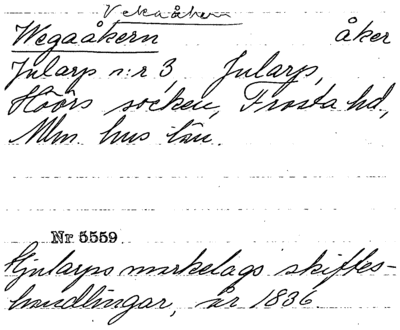 Vekaåkern
Wegaåkern åker
Jularp n:r 3, Jularp,
Höörs socken, Frosta hd.,
Mlm hus län.
Nr 5559
Hjularps markelags skiftes-
handlingar, år 1836.